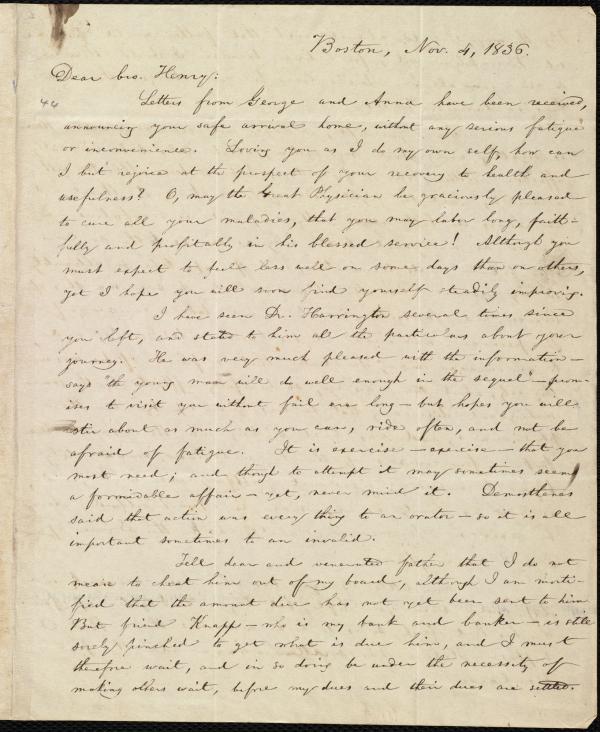 Boston, Nov. 4, 1836.
Dear bro. Henry:
Letters from George and Anna have been received,
announcing your safe arrival home, without any serious fatigue
or inconvenience. Loving you as I do my own self, how can
I but rejoice at the prospect of your recovery to health and
usefulness? O, may the Great Physician be graciously pleased
to cure all your maladies, that you may labor long, faith-
fully and profitably in his blessed service! Although you
must expect to feel less well on some days than on others,
yet I hope you will soon find yourself steadily improving.
I have seen Dr. Harrington several times since
you left, and stated to him all the particulars about your
journey. He was very much pleased with the information—
says "the young man will do well enough in the sequel"—prom-
ises to visit you without fail ere long—but hopes you will
stir about as much as you can, ride often, and not be
afraid of fatigue. It is exercise—exercise—that you
most need; and though to attempt it may sometimes seem
a formidable affair—yet, never mind it. Demosthenes
said that action was every thing to an orator—so it is all
important sometimes to an invalid.
Tell dear and venerated father that I do not
mean to cheat him out of my board, although I am morti-
fied that the amount due has not yet been sent to him
But friend Knapp—who is my bank and banker—is still
sorely pinched to get what is due him, and I must
therefore wait, and in so doing be under the necessity of
making others wait, before my dues and their dues are settled.